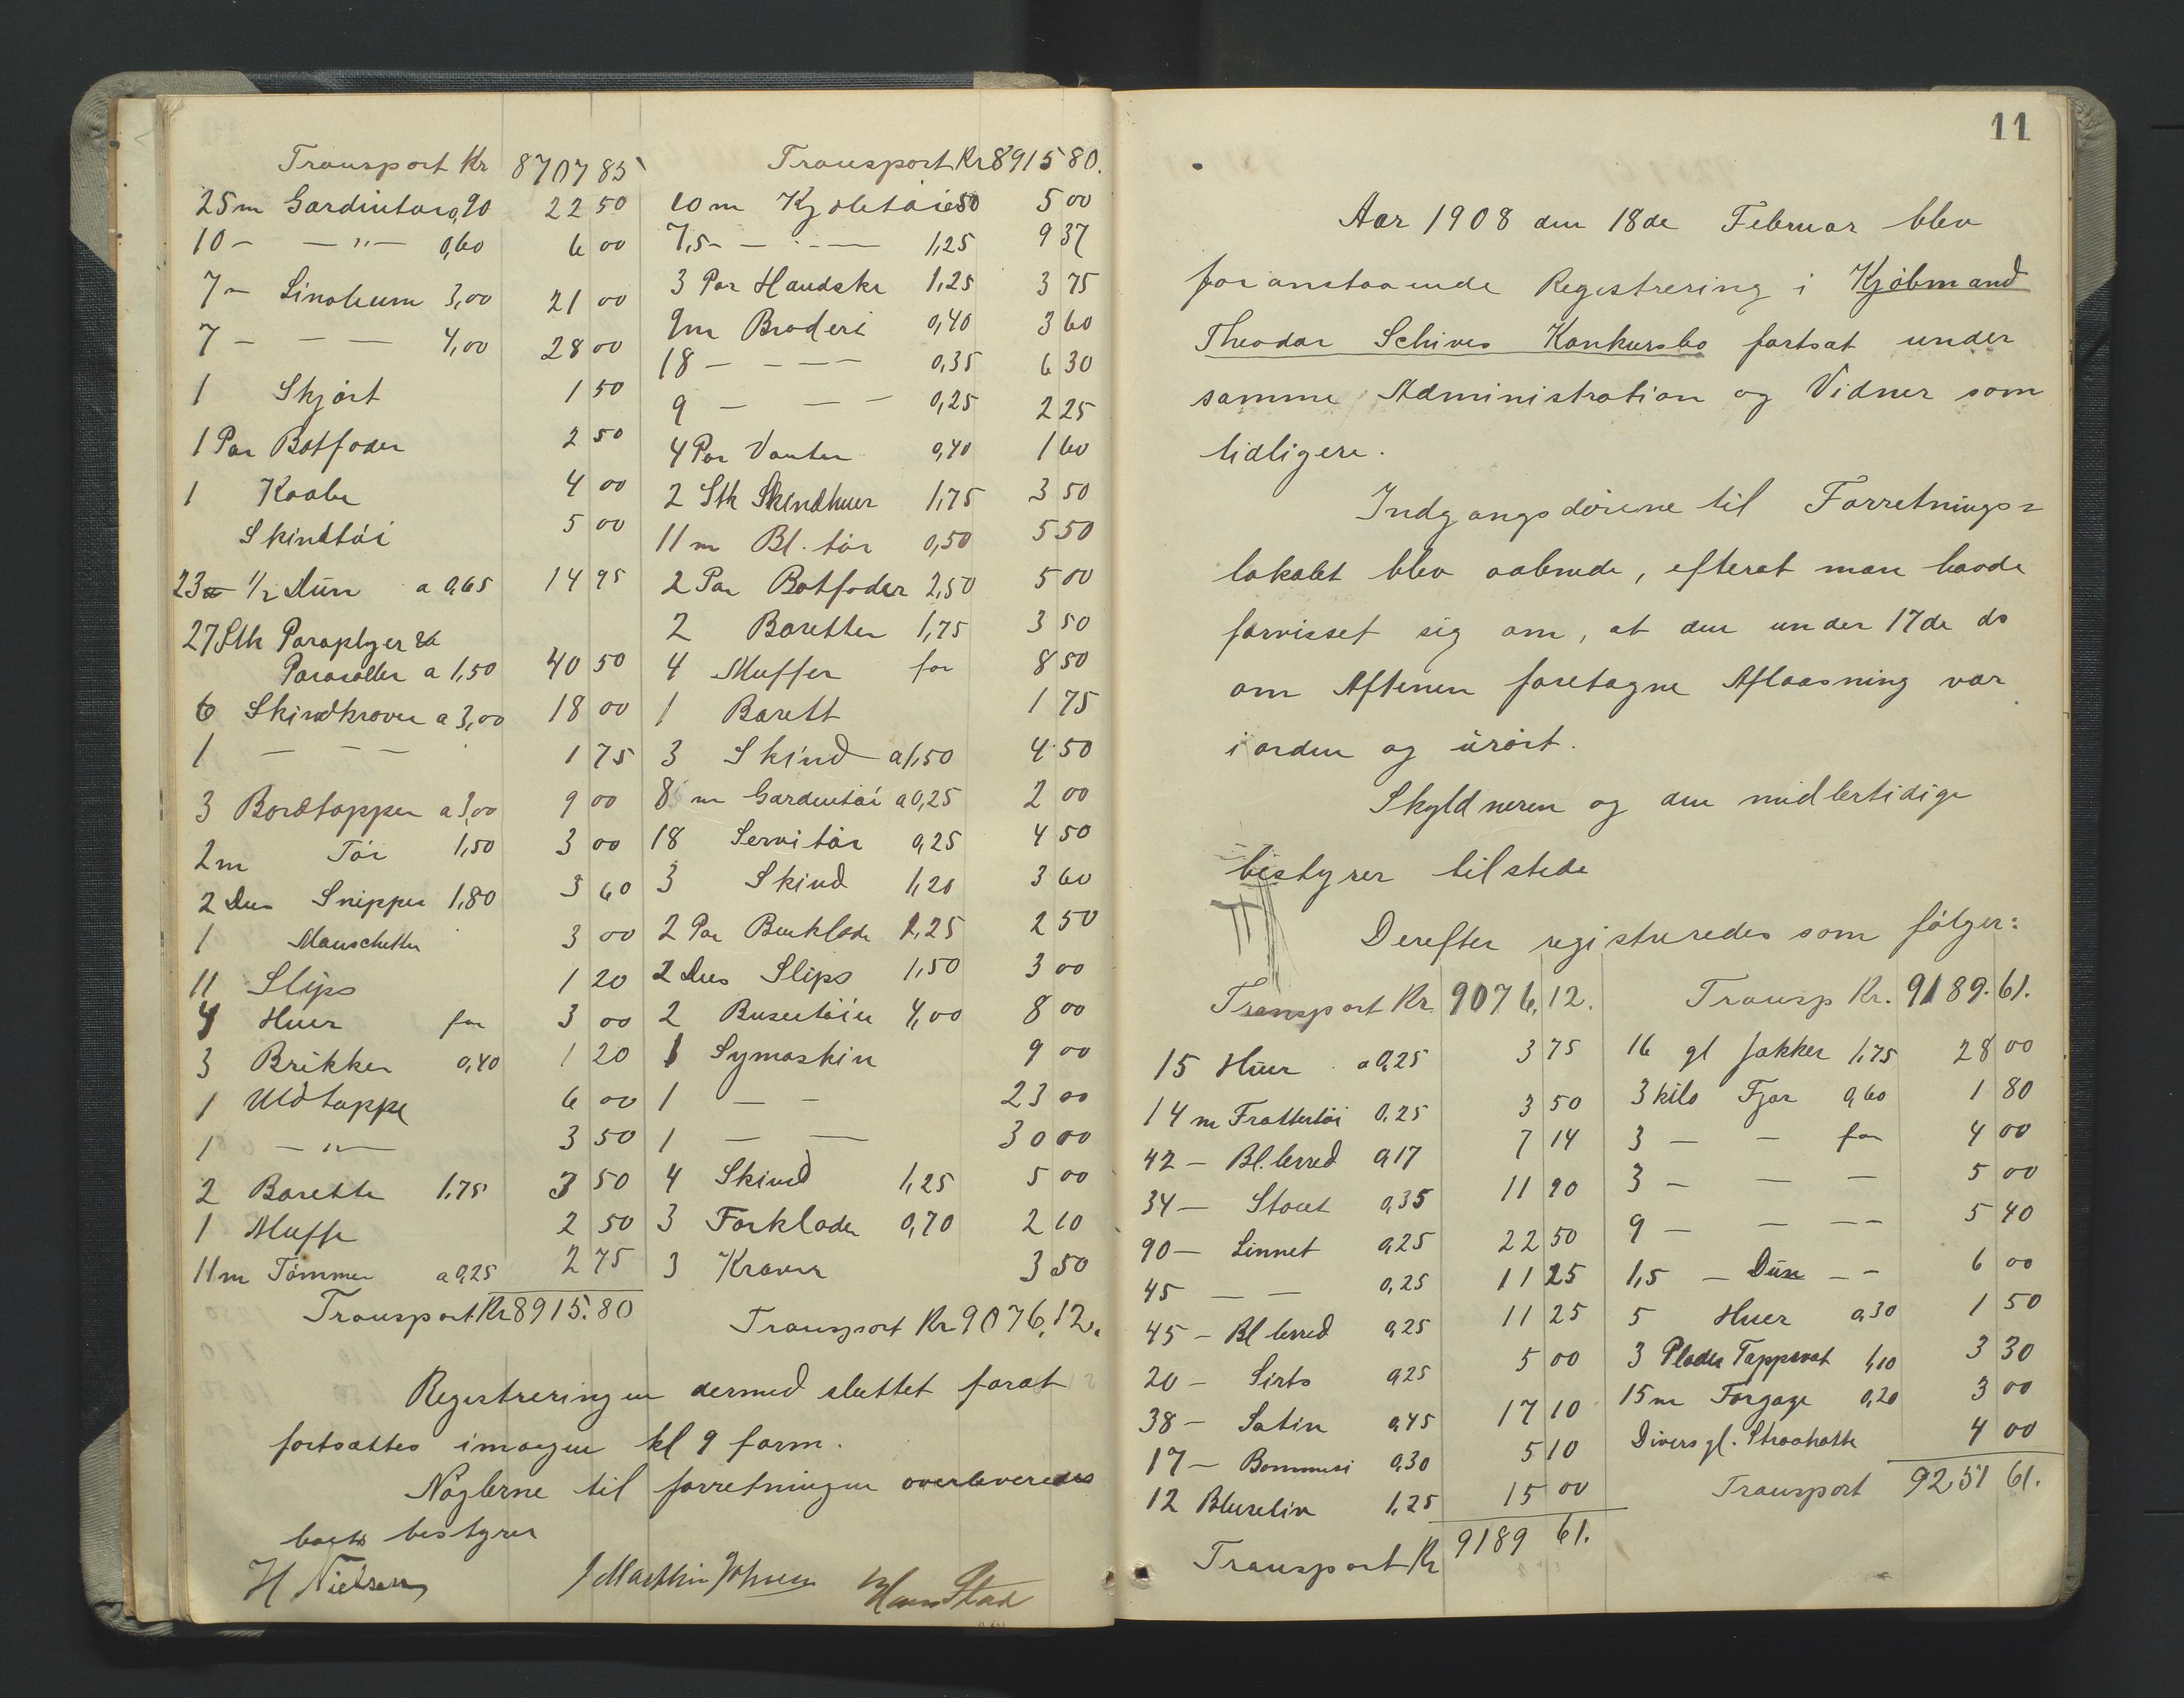 Transport Kr 8707 85
25 m Gardintøi 0,90 22 50
10 - - " - 0,60 6 00
7 - Linoleum 3,00 21 00
7 - - - 4,00 28 00
1 Skjørt 1 50
1 Par Botfoder 2 50
1 Kaabe 4 00
Skindtøi 5 00
23 1/2 Dun a 0,65 14 95
27 Stk Paraplyer &
Parasoller a 1,50 40 50
6 Skindkraver a 3,00 18 00
1 - - - 1 75
3 Bordtæpper a 3,00 9 00
2 m Tøi 1,50 3 00
2 Dus Snipper 1,80 3 60
1 Manschetter 3 00
11 Slips 1 20
4 Huer for 3 00
3 Brikker 0,40 1 20
1 Uldtæppe 6 00
1 - " - 3 50
2 Barette 1,75 3 50
1 Muffe 2 50
11 m Tømmer a 0,25 2 75
Transport Kr 8915.80
Transport Kr 8915 80.
10 m Kjoletøi 0,50 5 00
7,5 - - " - 1,25 9 37
3 Par Handske 1,25 3 75
9 m Broderi 0,40 3 60
18 - - - - 0,35 6 30
9 - - - 0,25 2 25
4 Par Vanter 0,40 1 60
2 Stk Skindhuer 1,75 3 50
11 m Bl. tøi 0,50 5 50
2 Par Botfoder 2,50 5 00
2 Baretter 1,75 3 50
4 Muffer for 8 50
1 Barett 1 75
3 Skind a 1,50 4 50
8 m Gardintøi a 0,25 2 00
18 Servitør 0,25 4 50
3 Skind 1,20 3 60
2 Par Benklæde 1,25 2 50
2 Dus Slips 1,50 3 00
2 Busentøier 4,00 8 00
1 Symaskin 9 00
1 - - 23 00
1 - - 30 00
4 Skind 1,25 5 00
3 Forklæde 0,70 2 10
3 Kraver 3 50
Transport Kr 9076,12.
Registreringen dermed sluttet forat
fortsættes imorgen kl 9 form.
Nøglerne til forretningen overleveredes
boets bestyrer
H Nielsen J Marthin Johnsen Hans Stad
11
Aar 1908 den 18de Februar blev
foranstaaende Registrering i Kjøbmand
Theodor Schives Konkursbo fortsat under
samme Administration og Vidner som
tidligere.
Indgangsdørene til Forretnings=
lokalet blev aabnede, efterat man havde
forvisset sig om, at den under 17de ds
om Aftenen foretagne Aflaasning var
i orden og urørt.
Skyldneren og den midlertidige
bestyrer tilstede
Derefter registreredes som følger:
Transport Kr. 9076,12.
15 Huer a 0,25 3 75
14 m Frottertøi 0,25 3 50
42 - Bl. lerred 0,17 7 14
34 - Stout 0,35 11 90
90 - Linnet 0,25 22 50
45 - - 0,25 11 25
45 - Bl lerred 0,25 11 25
20 - Sirts 0,25 5 00
38 - Satin 0,45 17 10
17 - Bommesi 0,30 5 10
12 Bluseliv 1,25 15 00
Transport Kr 9189 61.
Transp Kr. 9189.61.
16 gl Jakker 1,75 28 00
3 kilo Fjær 0,60 1 80
3 - - for 4 00
3 - - - 5 00
9 - - - - 5 40
1,5 - Dun - - 6 00
5 Huer 0,30 1 50
3 Plader Tæppevat 1,10 3 30
15 m Forgage 0,20 3 00
Divers gl. Straahatte 4 00
Transport 9251 61.